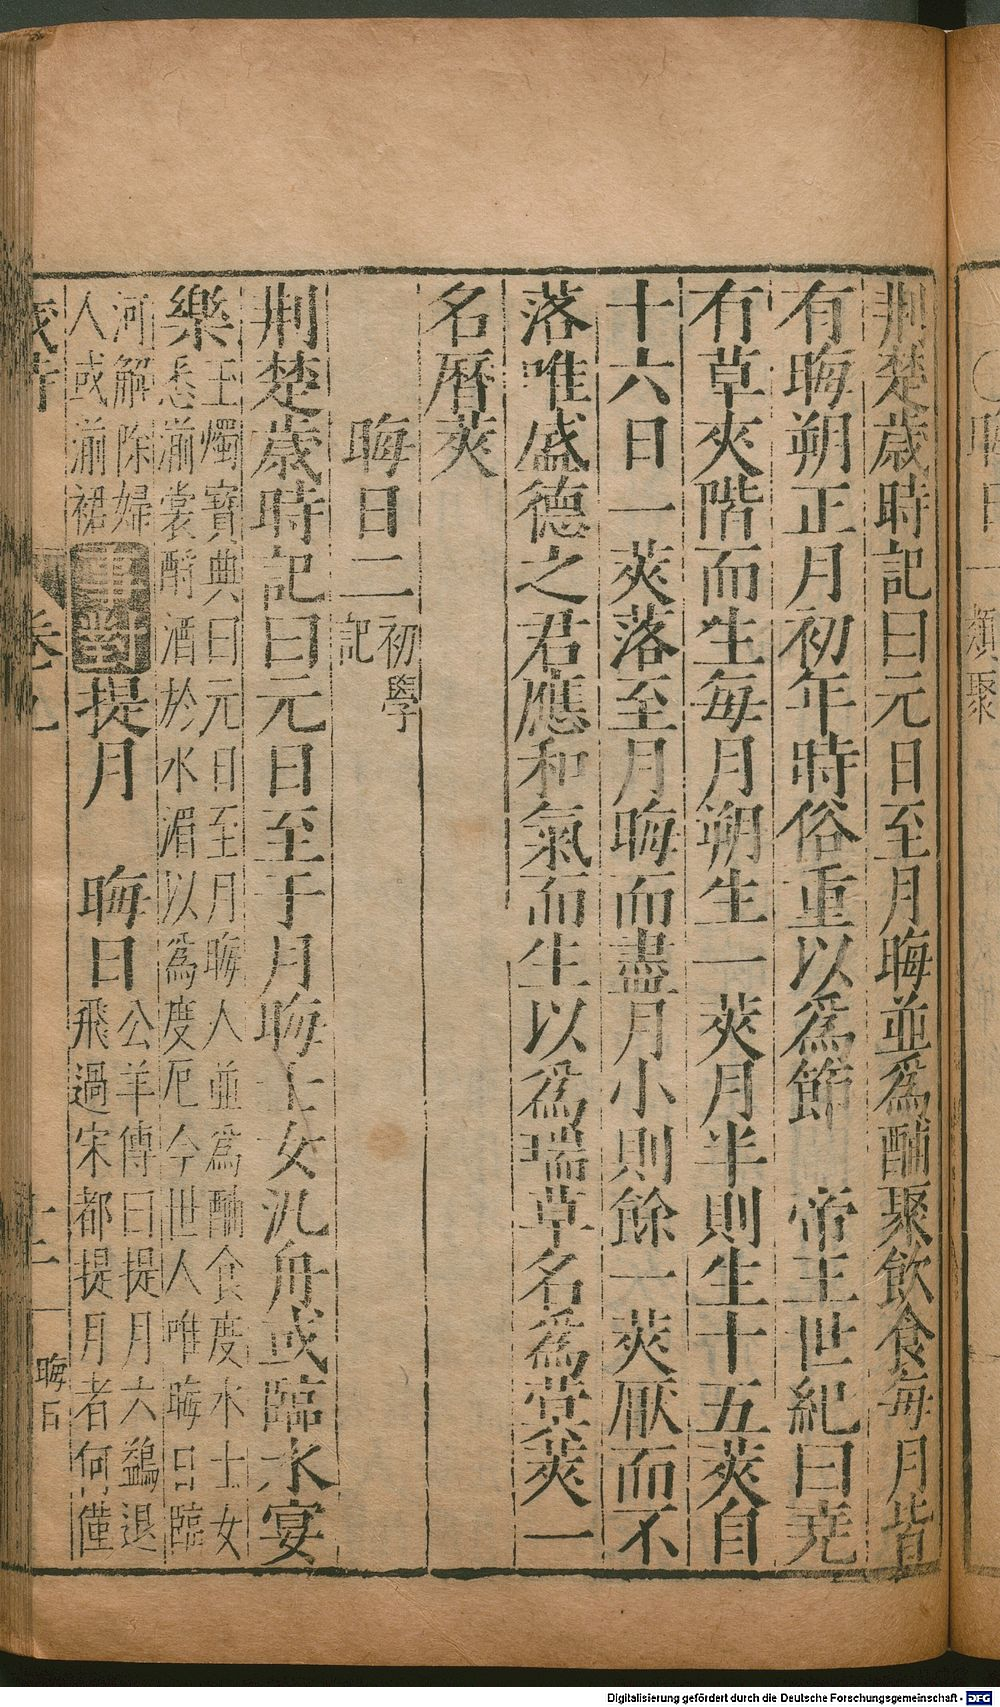 荆楚歲時記曰元日至月晦並爲酺聚飲食每月皆
有晦朔正月初年時俗重以爲節　帝王世紀曰堯
有草夾階而生每月朔生一莢月半則生十五莢自
十六日一莢落至月晦而盡月小則餘一莢厭而不
落唯盛德之君應和氣而生以爲瑞草名爲蓂莢一
名曆莢
晦日二
初學
記
荆楚歲時記曰元日至于月晦士女汎舟或臨水宴
樂
玉燭寶典曰元日至月晦人並爲酺食度水士女
悉湔裳酹酒於水湄以爲度厄今世人唯晦日臨
河解除婦
人或湔裙
事對
提月　晦日
公羊傳曰提月六鷁退
飛過宋都提月者何僅
歲時
卷九
晦日
Digitalisierung gefördert durch die Deutsche Forschungsgemeinschaft - DFG